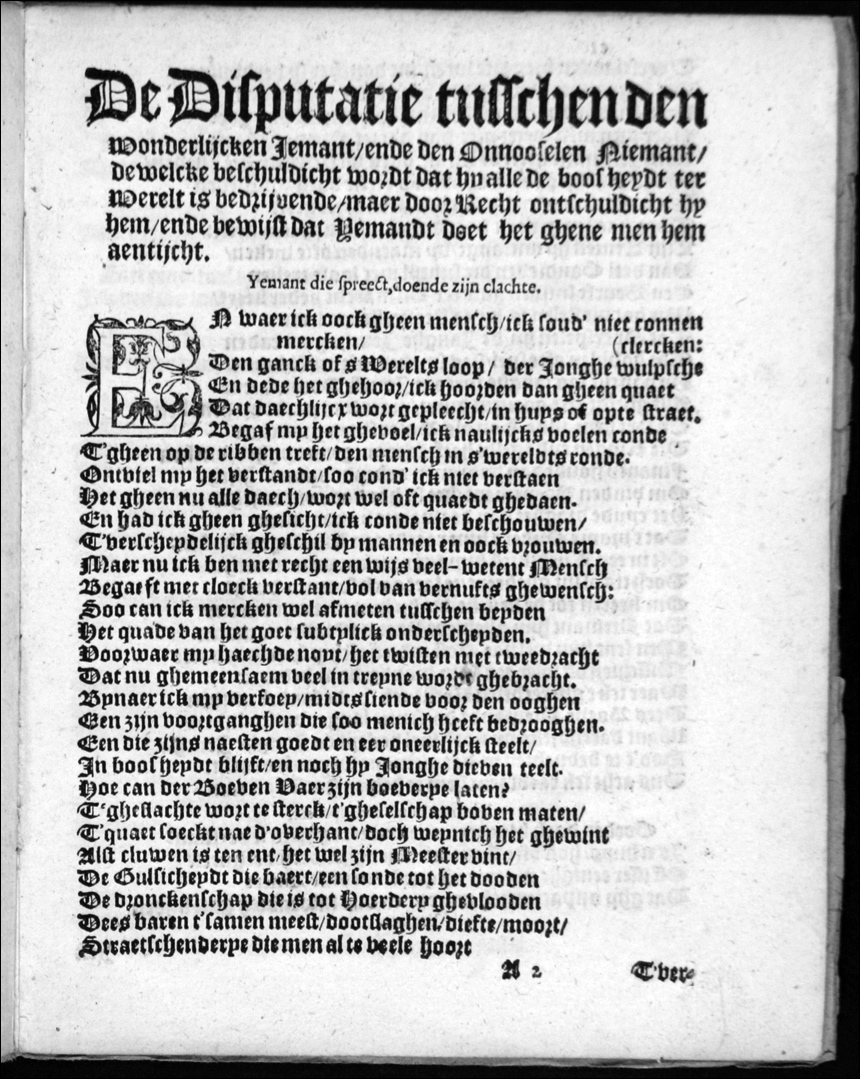 De Disputatie tusschen den
Wonderlijcken Jemant/ende den Onnooselen Niemant/
dewelcke beschuldicht wordt dat hy alle de boosheydt ter
Werelt is bedrijvende/maer door Recht ontschuldicht hy
hem/ende bewijst dat Yemandt doet het ghene men hem
aentijcht.
Yemant die spreect, doende zijn clachte.
EN waer ick oock gheen mensch/ick soud' niet connen
mercken/ (clercken:
Den ganck of s'Werelts loop/ der Jonghe wulpsche
En dede het ghehoor/ick hoorden dan gheen quaet
Dat daechlijcx wort gepleecht/in huys of opte straet.
Begaf my het ghevoel/ick naulijcks voelen conde
T'gheen op de ribben treft/den mensch in s'wereldts ronde.
Ontviel my het verstandt/soo cond' ick niet verstaen
Het gheen nu alle daech/wort wel oft quaedt ghedaen.
En had ick gheen ghesicht/ick conde niet beschouwen/
T'verscheydelijck gheschil by mannen en oock vrouwen.
Maer nu ick ben met recht een wijs veel-wetent Mensch
Begaeft met cloeck verstant/vol van vernufts ghewensch:
Soo can ick mercken wel afmeten tusschen beyden
Het quade van het goet subtylick onderscheyden.
Voorwaer my haechde noyt/het twisten met tweedracht
Dat nu ghemeensaem veel in treyne wordt ghebracht.
Bynaer ick my verfoey/midts siende voor den ooghen
Een zijn voortganghen die soo menich heeft bedrooghen.
Een die zijns naesten goedt en eer oneerlijck steelt/
In boosheydt blijft/en noch hy Jonghe dieven teelt.
Hoe can der Boeven Vaer zijn boeverye laten?
T'gheslachte wort te sterck/t'gheselschap boven maten/
T'quaet soeckt nae d'overhant/doch weynich het ghewint
Alst cluwen is ten ent/het wel zijn Meester vint/
De Gulsicheydt die baert/een sonde tot het dooden
De dronckenschap die is tot Hoerdery ghevlooden
Dees baren t'samen meest/dootslaghen/diefte/moort/
Straetschenderye die men al te veele hoort
A 2 T'ver-